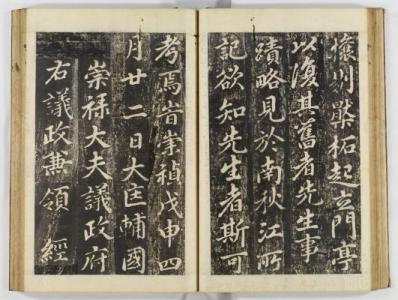 起立門亭
以復其舊者先生事
蹟略見於南秋江所
記欲知先生者斯可
考焉旹崇禎戊申四
月廿二日大匡輔國
崇祿大夫議政府
右議政兼領 經